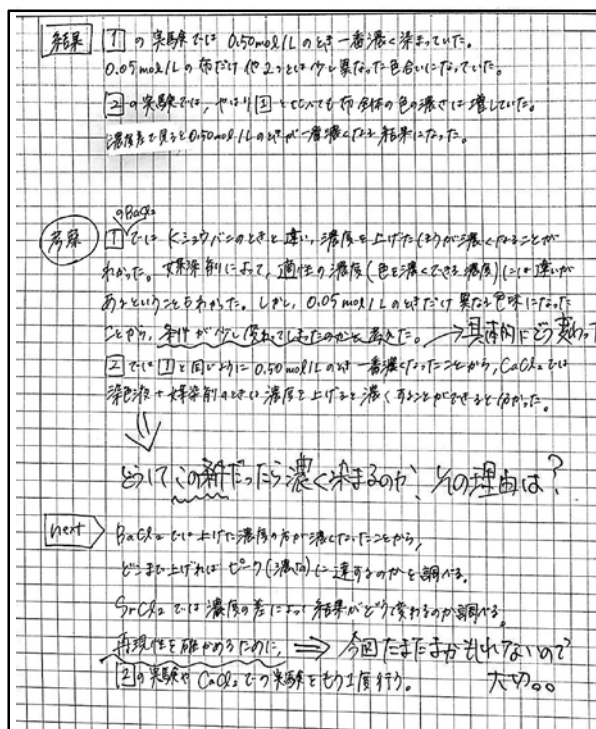 結果 1 の実験では 0.50mol/Lのとき一番濃く染まっていた。
0.05mol/Lの布だけ他2つとは少し異なった色合いになっていた。
2 の実験では、やはり1と比べても布全体の色の濃さは増していた。
濃度差で見ると0.50mol/Lのときが一番濃くなる結果になった。
のBaCl₂
考察 1 では Kミョウバンのときと違い、濃度を上げたほうが濃くなることが
わかった。媒染剤によって、適性の濃度(色を濃くできる濃度)には違いが
あるということもわかった。しかし、0.05mol/Lのときだけ異なる色味になった
ことから、条件が少し変わってしまったのかと考えた。→具体的にどう変わって
2 では 1 と同じように0.50mol/Lのとき一番濃くなったことから、CaCl₂では
染色液+媒染剤のときは濃度を上げると濃くすることができると分かった。
⇓
どうしてこの条件だったら濃く染まるのか、その理由は?
next BaCl₂では上げた濃度の方が濃くなったことから、
どこまで上げればピーク(濃度の)に達するのかを調べる。
SrCl₂では濃度の差によって結果がどう変わるのか調べる。
再現性を確かめるために、⇒ 今回たまたまかもしれないので
2 の実験やCaCl₂での実験をもう1度行う。 大切。。